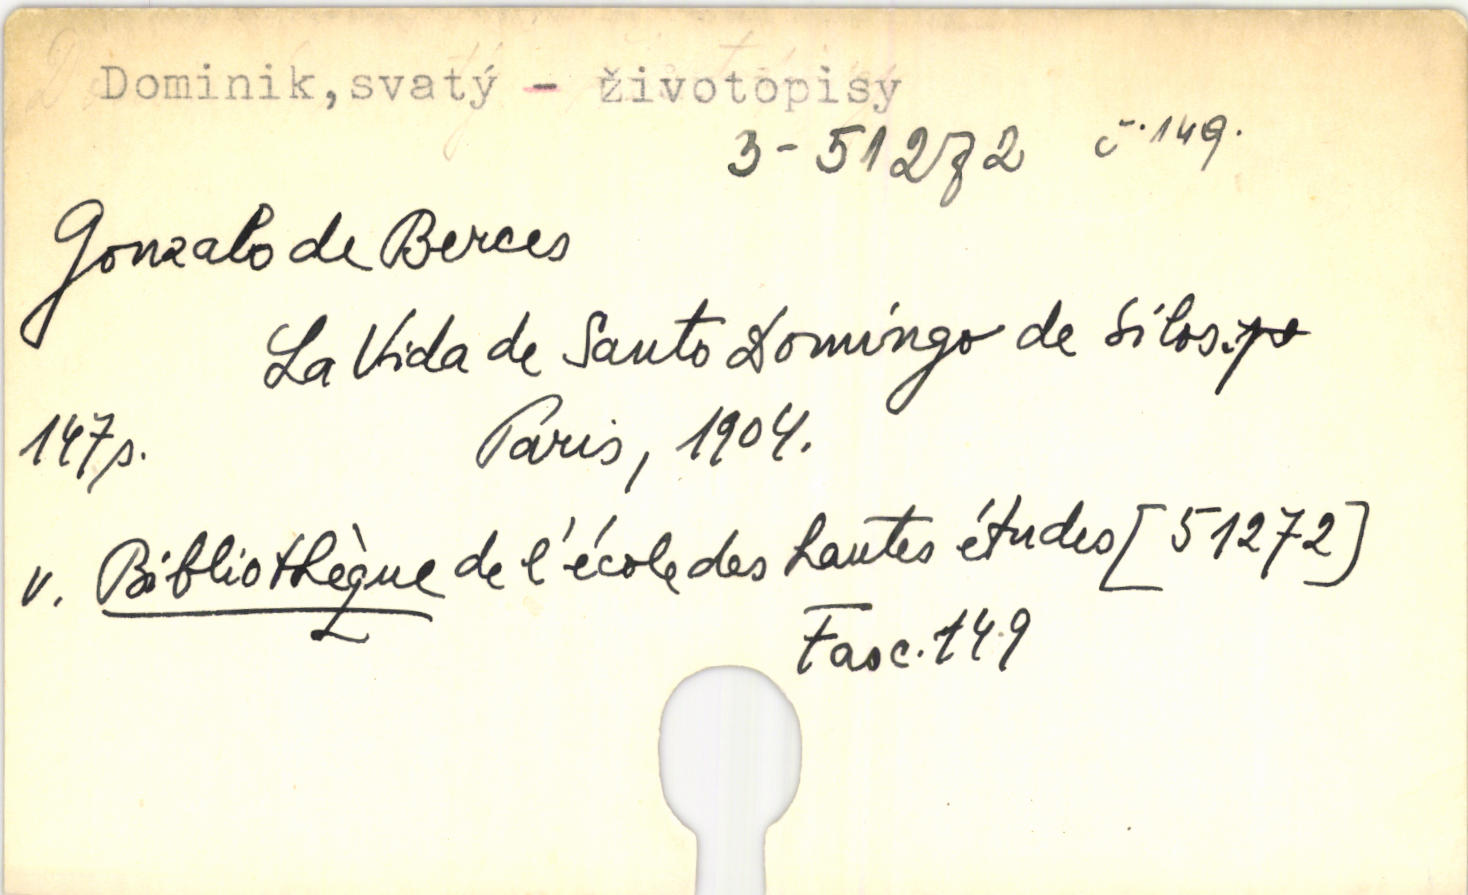 Dominik,svatý - životopisy
3-51272 č.149.
Gonzalo de Berces
La Vida de Santo Domingo de Silos.
147s. Paris, 1904.
v. Bibliothèque de l'école des hautes études [51272]
Fasc. 149